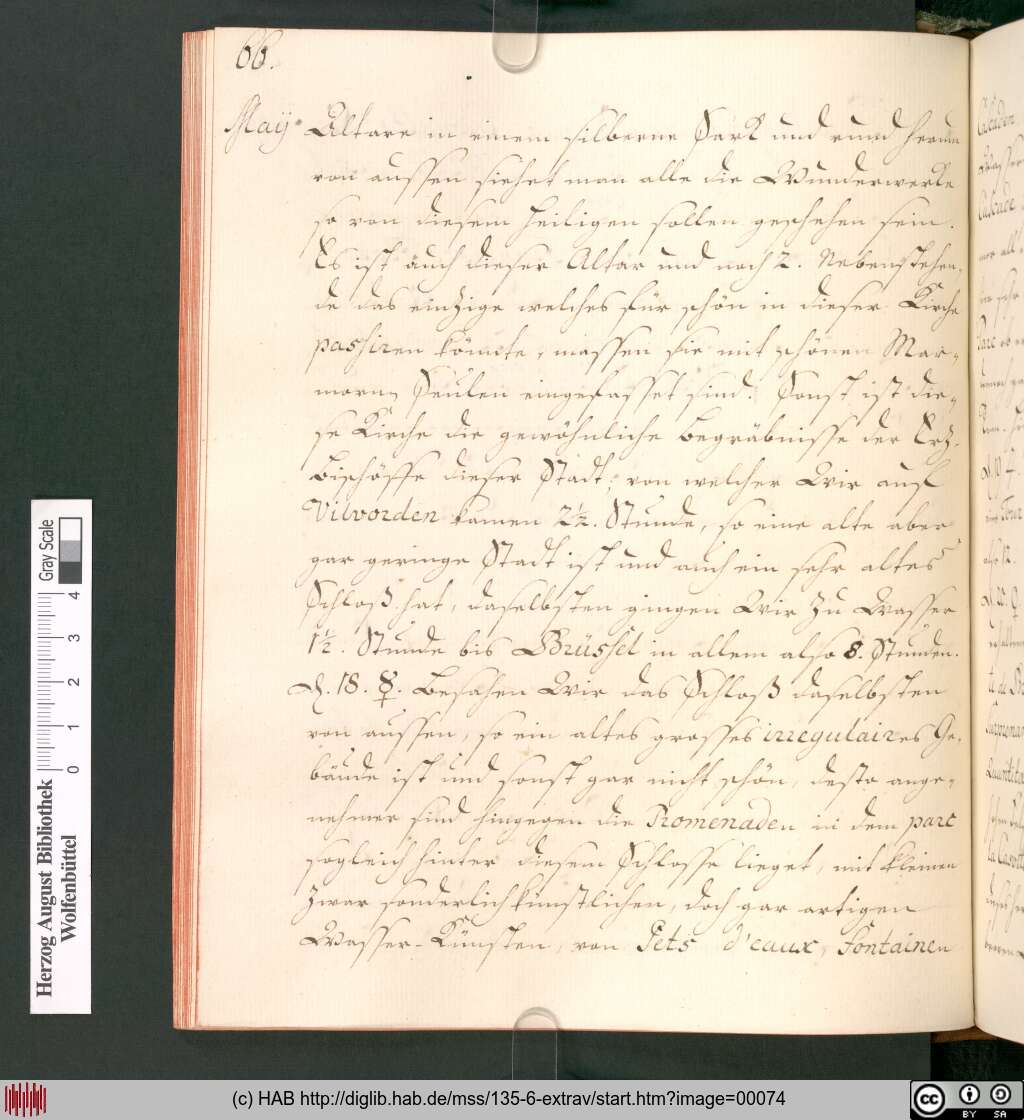 66.
May Altare in einem silberne Sark und rund herum
von aussen siehet man alle die Wunderwerke
so von diesem Heiligen sollen geschehen sein.
Es ist auch dieser Altar und noch 2. Nebenstehen-
de das eintzige welches für schön in dieser Kirche
passiren könnte, massen sie mit schönen Mar-
morn Seulen eingefasset sind. Sonst ist die-
se Kirche die gewöhnliche Begräbnisse der Ertz-
Bischöffe dieser Stadt, von welcher Wir auf
Vilvorden kamen 2½. Stunde, so eine alte aber
gar geringe Stadt ist und auch ein sehr altes
Schloß hat, daselbsten gingen Wir zu Wasser
1½. Stunde bis Brüssel in allem also 8. Stunden.
D. 18. ☿. Besahen Wir das Schloß daselbsten
von aussen, so ein altes grosses irregulaires Ge-
bäude ist und sonst gar nicht schön, desto ange-
nehmer sind hingegen die Promenaden in dem parc
sogleich hinter diesem Schlosse lieget, mit kleinen
zwar sonderlich künstlichen, doch gar artigen
Wasser-Künsten, von Jets d'eaux, Fontainen
Herzog August Bibliothek
Wolfenbüttel
0 1 2 3 4
Gray Scale
(c) HAB http://diglib.hab.de/mss/135-6-extrav/start.htm?image=00074
cc BY SA